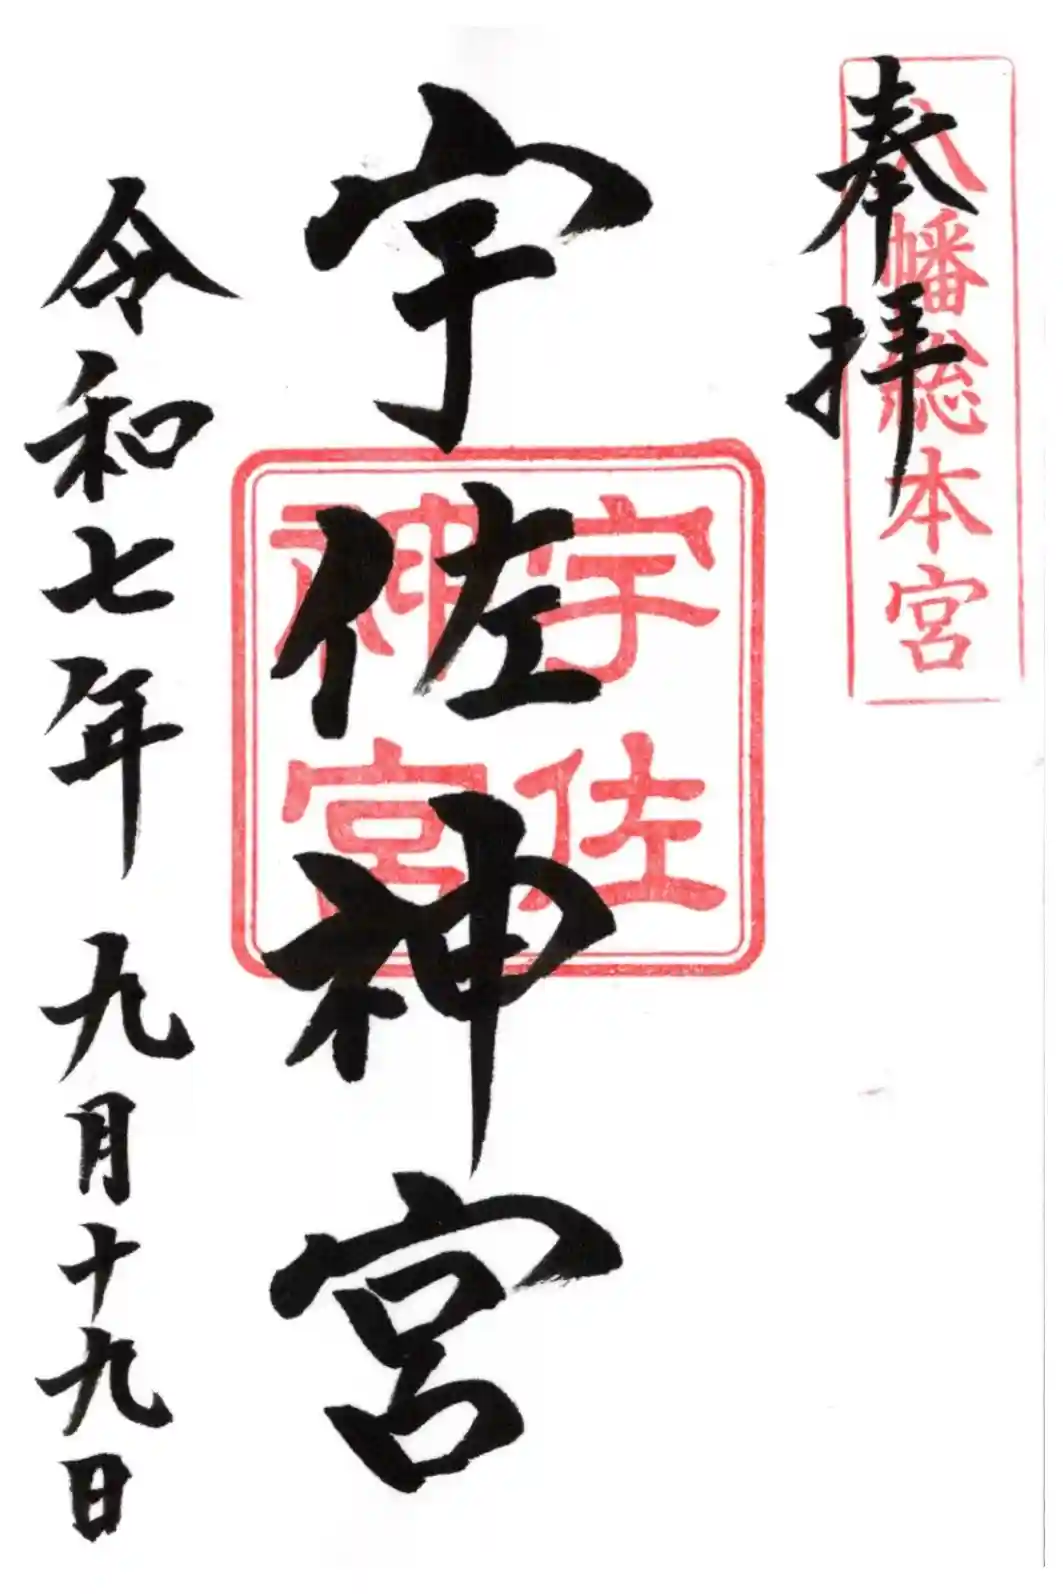 奉拝
八幡総本宮
宇佐神宮
宇佐
神宮
令和七年 九月十九日